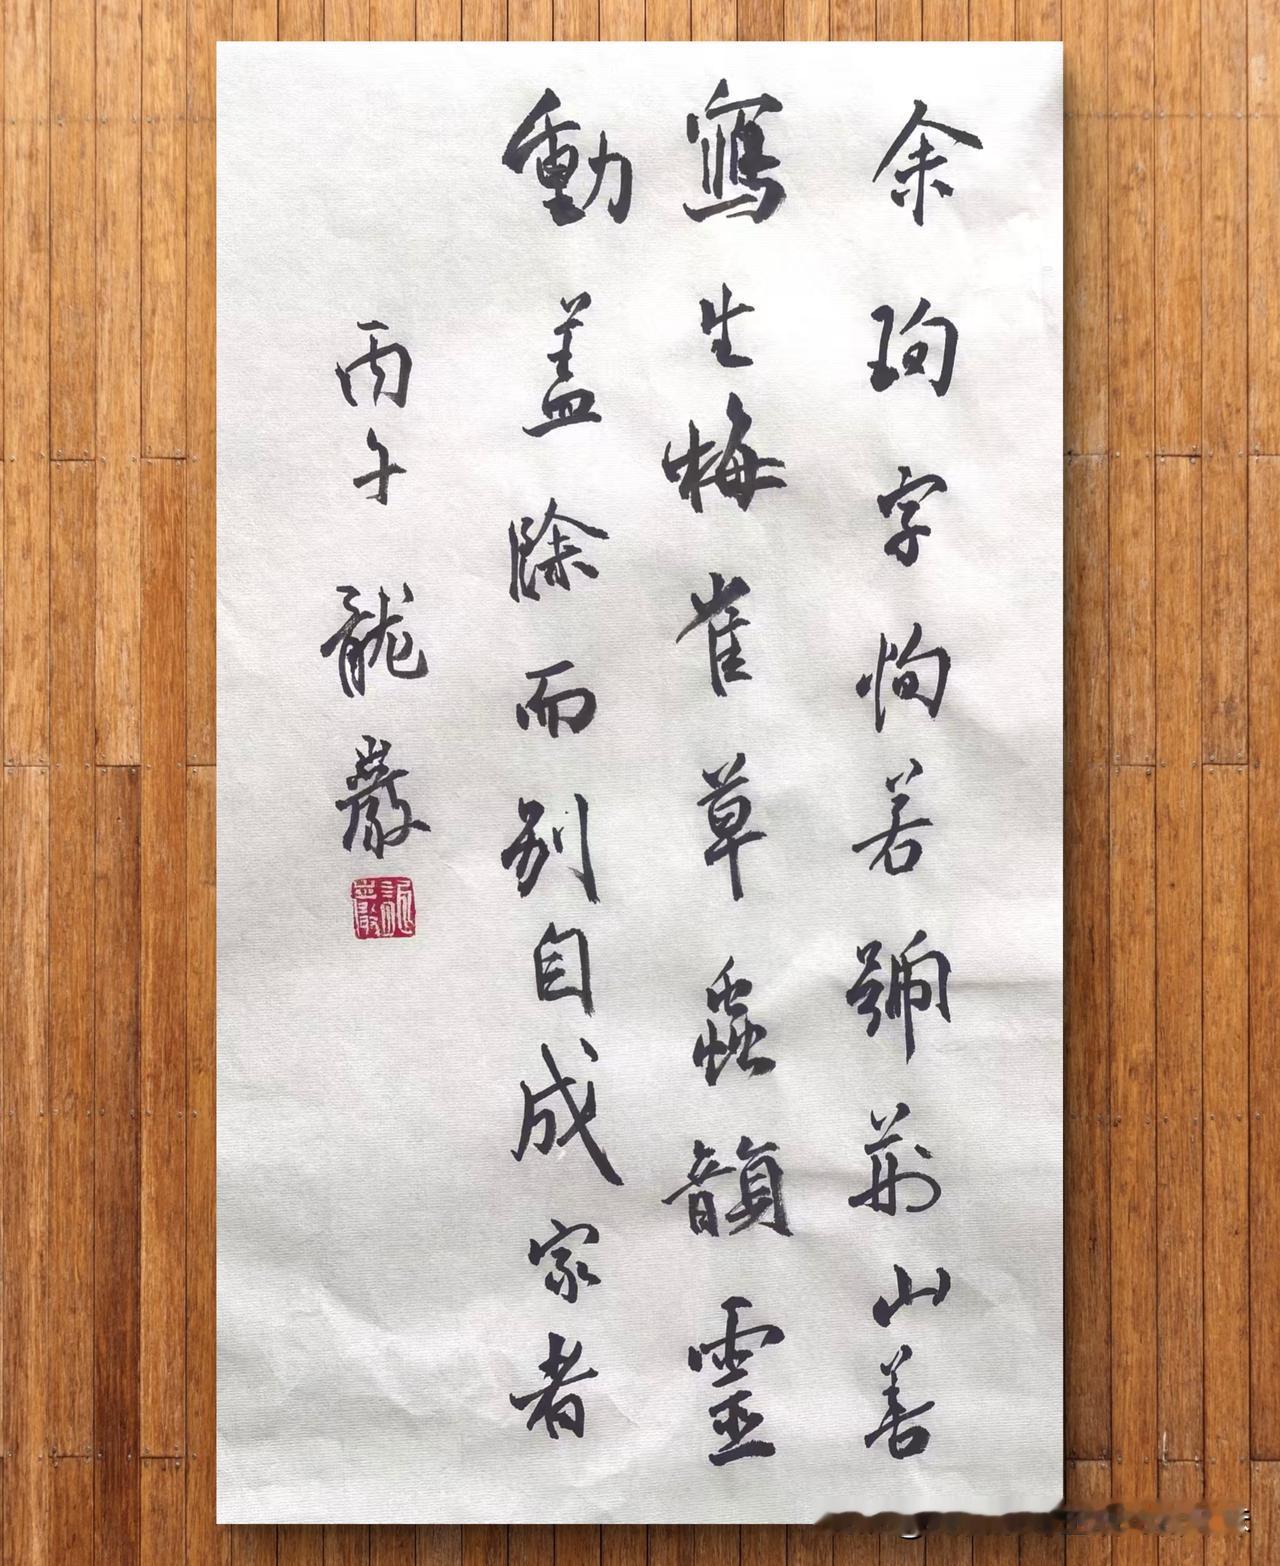 余珣字恂若號荊山善
寫生梅雀草蟲韻靈
動蓋除而别自成家者
丙午龍巖
龍巖